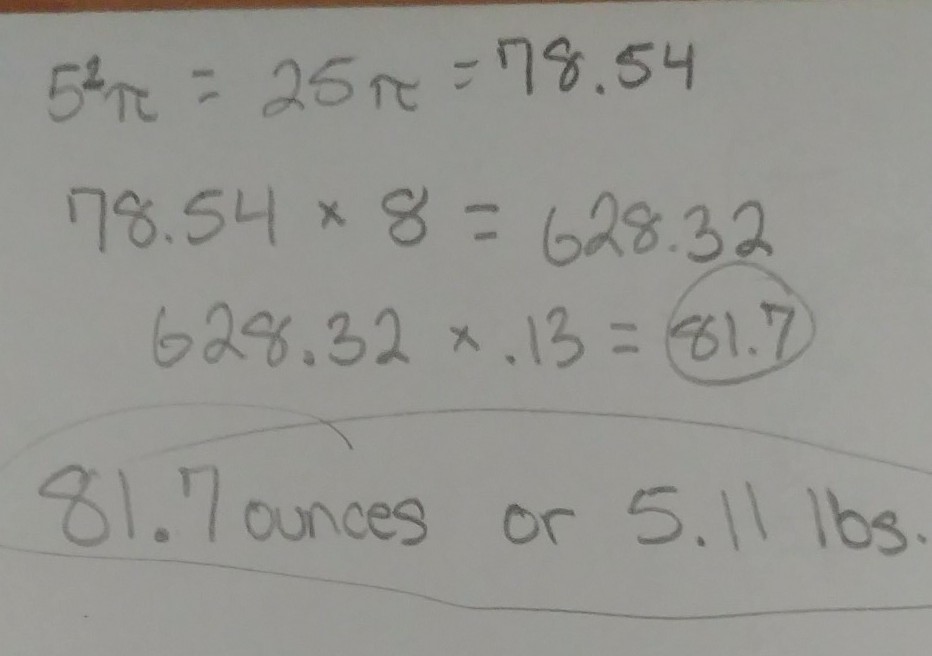 5²π = 25π = 78.54
78.54 × 8 = 628.32
628.32 × .13 = 81.7
81.7 ounces or 5.11 lbs.